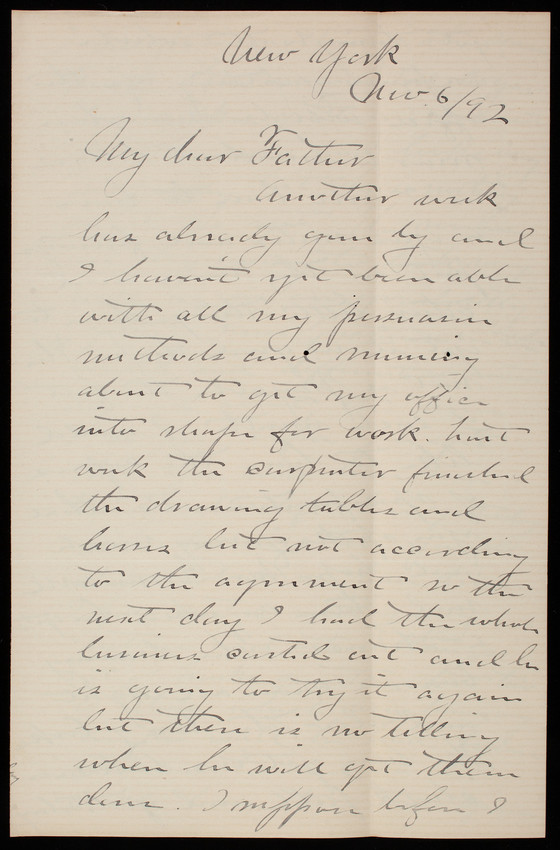 New York
Nov. 6/92
My dear Father
Another week
has already gone by and
I haven't yet been able
with all my persuasive
methods and running
about to get my office
into shape for work. Last
week the carpenter finished
the drawing tables and
horses but not according
to the agreement so the
next day I had the whole
business carted out and he
is going to try it again
but there is no telling
when he will get them
done. I suppose before I